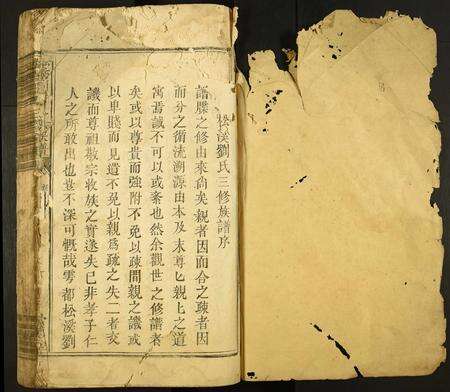 松溪劉氏三修族譜序
譜牒之修由來尚矣親者因而合之疎者因
而分之循流溯源由本及末尊尊親親之道
寓焉誠不可以或紊也然余觀世之修譜者
矣或以尊貴而強附不免以疎間親之譏或
以卑賤而見遺不免以親為疎之失二者交
譏而尊祖敬宗收族之實遂失已非孝子仁
人之所敢出也豈不深可慨哉雩都松溪劉